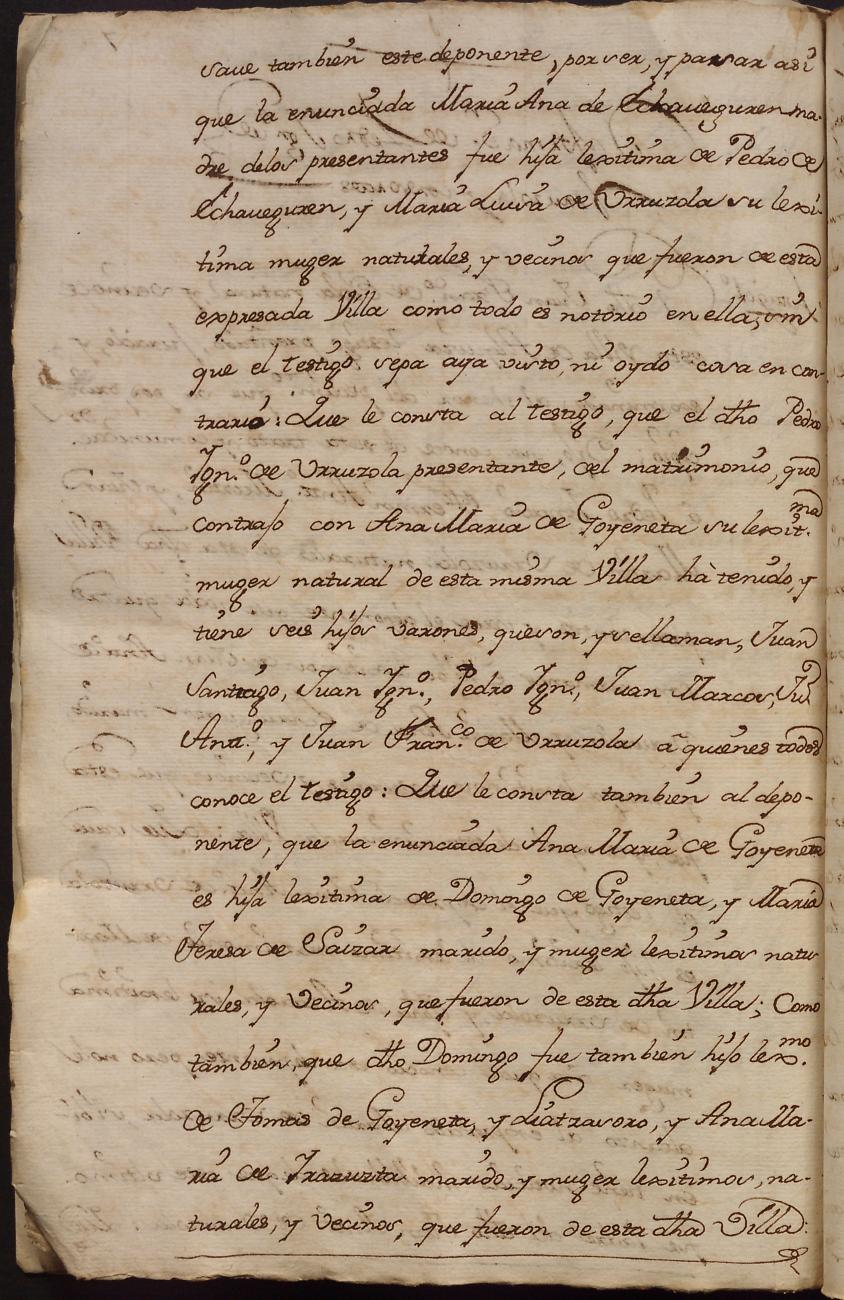 saue tambien este deponente, por ser, y passar asi
que la enunciada Maria Ana de Echaueguren ma-
dre delos presentantes fue hija lexitima de Pedro de
Echaueguren, y Maria Luisa de Urruzola su lexi-
tima muger naturales, y vecinos que fueron de esta
expresada Villa como todo es notorio en ella, sin
que el testigo sepa aya visto, ni oydo cosa en con-
trario: Que le consta al testigo, que el dho Pedro
Ign.º de Urruzola presentante, del matrimonio, que
contrajo con Ana Maria de Goyeneta su lexit.ma
muger natural de esta misma Villa hà tenido, y
tiene seis hijos varones, que son, y se llaman, Juan
Santiago, Juan Ign.º, Pedro Ign.º, Juan Marcos, Jun
Antt.º, y Juan Fran.co de Urruzola â quienes todos
conoce el testigo: Que le consta tambien al depo-
nente, que la enunciada Ana Maria de Goyeneta
es hija lexitima de Domingo de Goyeneta, y Maria
Teresa de Saizar marido, y muger lexitimos natu
rales, y Vecinos, que fueron de esta dha Villa; Como
tambien, que dho Domingo fue tambien hijo lex.mo
de Tomas de Goyeneta, y Liatzasoro, y Ana Ma-
ria de Irazuzta marido, y muger lexitimos, na-
turales, y Vecinos, que fueron de esta dha Villa: